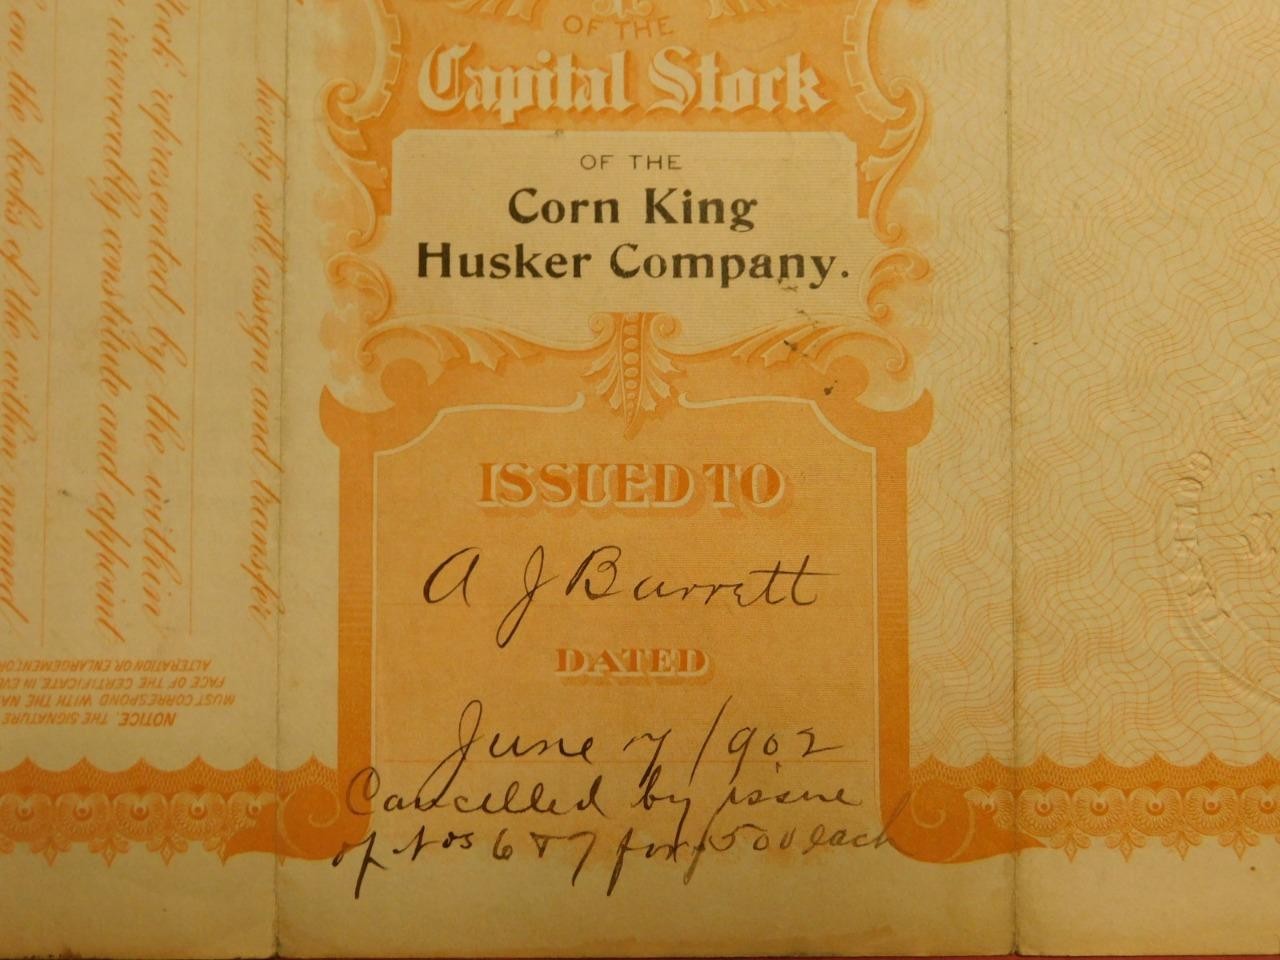 OF THE
Capital Stock
OF THE
Corn King
Husker Company.
ISSUED TO
A J Barrett
DATED
June 17 1902
Cancelled by issue
of Nos 6 & 7 for 500 each
hereby sell assign and transfer
Stock represented by the within
irrevocably constitute and appoint
on the books of the within named
NOTICE. THE SIGNATURE
MUST CORRESPOND WITH THE
FACE OF THE CERTIFICATE IN
ALTERATION OR ENLARGEMENT OR